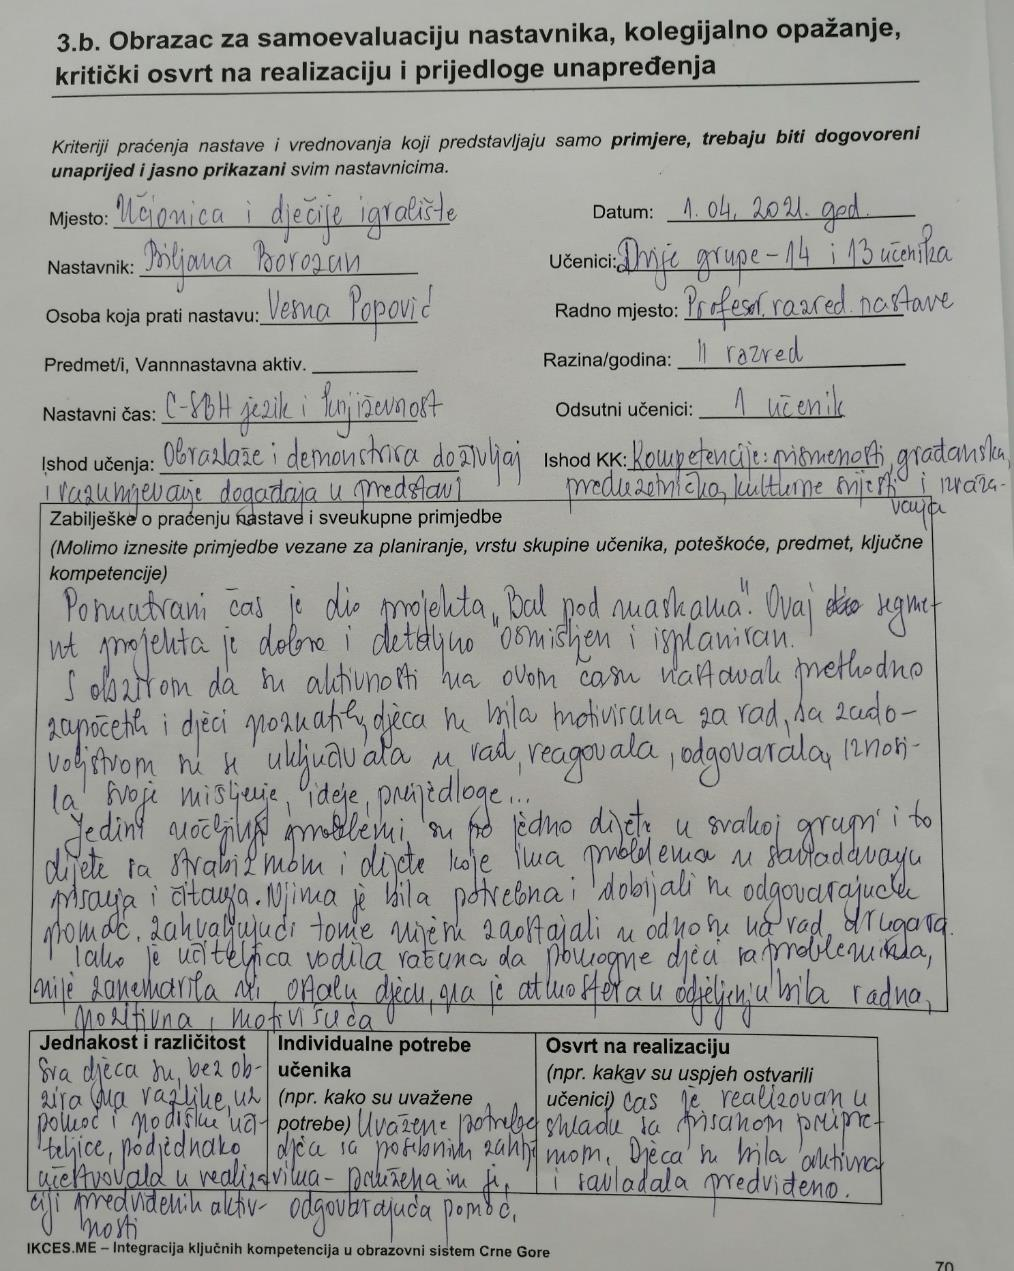 3.b. Obrazac za samoevaluaciju nastavnika, kolegijalno opažanje,
kritički osvrt na realizaciju i prijedloge unapređenja
Kriteriji praćenja nastave i vrednovanja koji predstavljaju samo primjere, trebaju biti dogovoreni
unaprijed i jasno prikazani svim nastavnicima.
Mjesto: Učionica i dječije igralište
Datum: 1.04. 2021. god.
Nastavnik: Biljana Borozan
Učenici: Dvije grupe - 14 i 13 učenika
Osoba koja prati nastavu: Vesna Popović
Radno mjesto: Profesor razred. nastave
Predmet/i, Vannnastavna aktiv.
Razina/godina: II razred
Nastavni čas: C-SBH jezik i književnost
Odsutni učenici: 1 učenik
Ishod učenja: Obrazlaže i demonstrira doživljaj
i razumijevanje događaja u predstavi
Ishod KK: Kompetencije: pismenosti, građanska,
preduzetnička, kulturne svijesti i izraža-
vanja
Zabilješke o praćenju nastave i sveukupne primjedbe
(Molimo iznesite primjedbe vezane za planiranje, vrstu skupine učenika, poteškoće, predmet, ključne
kompetencije)
Posmatrani čas je dio projekta „Bal pod maskama". Ovaj segme-
nt projekta je dobro i detaljno osmišljen i isplaniran.
S obzirom da su aktivnosti na ovom času nastavak prethodno
započetih i djeci poznatih, djeca su bila motivisana za rad, sa zado-
voljstvom su se uključivala u rad, reagovala, odgovarala, iznosi-
la svoje mišljenje, ideje, prijedloge...
Jedini uočljivi problemi su po jedno dijete u svakoj grupi i to
dijete sa strabizmom i dijete koje ima problema u savladavanju
pisanja i čitanja. Njima je bila potrebna i dobijali su odgovarajuću
pomoć. Zahvaljujući tome nijesu zaostajali u odnosu na rad drugara.
Iako je učiteljica vodila računa da pomogne djeci sa problemima,
nije zanemarila ni ostalu djecu, pa je atmosfera u odjeljenju bila radna,
pozitivna i motivišuća
Jednakost i različitost
Sva djeca su, bez ob-
zira na razlike, uz
pomoć i podršku uči-
teljice, podjednako
učestvovala u realiza-
ciji predviđenih aktiv-
nosti
Individualne potrebe
učenika
(npr. kako su uvažene
potrebe) Uvažene potrebe
djeca sa posebnim zahtje
vima - pružena im je
odgovarajuća pomoć.
Osvrt na realizaciju
(npr. kakav su uspjeh ostvarili
učenici) čas je realizovan u
skladu sa pisanom pripre-
mom. Djeca su bila aktivna
i savladala predviđeno.
IKCES.ME – Integracija ključnih kompetencija u obrazovni sistem Crne Gore
70